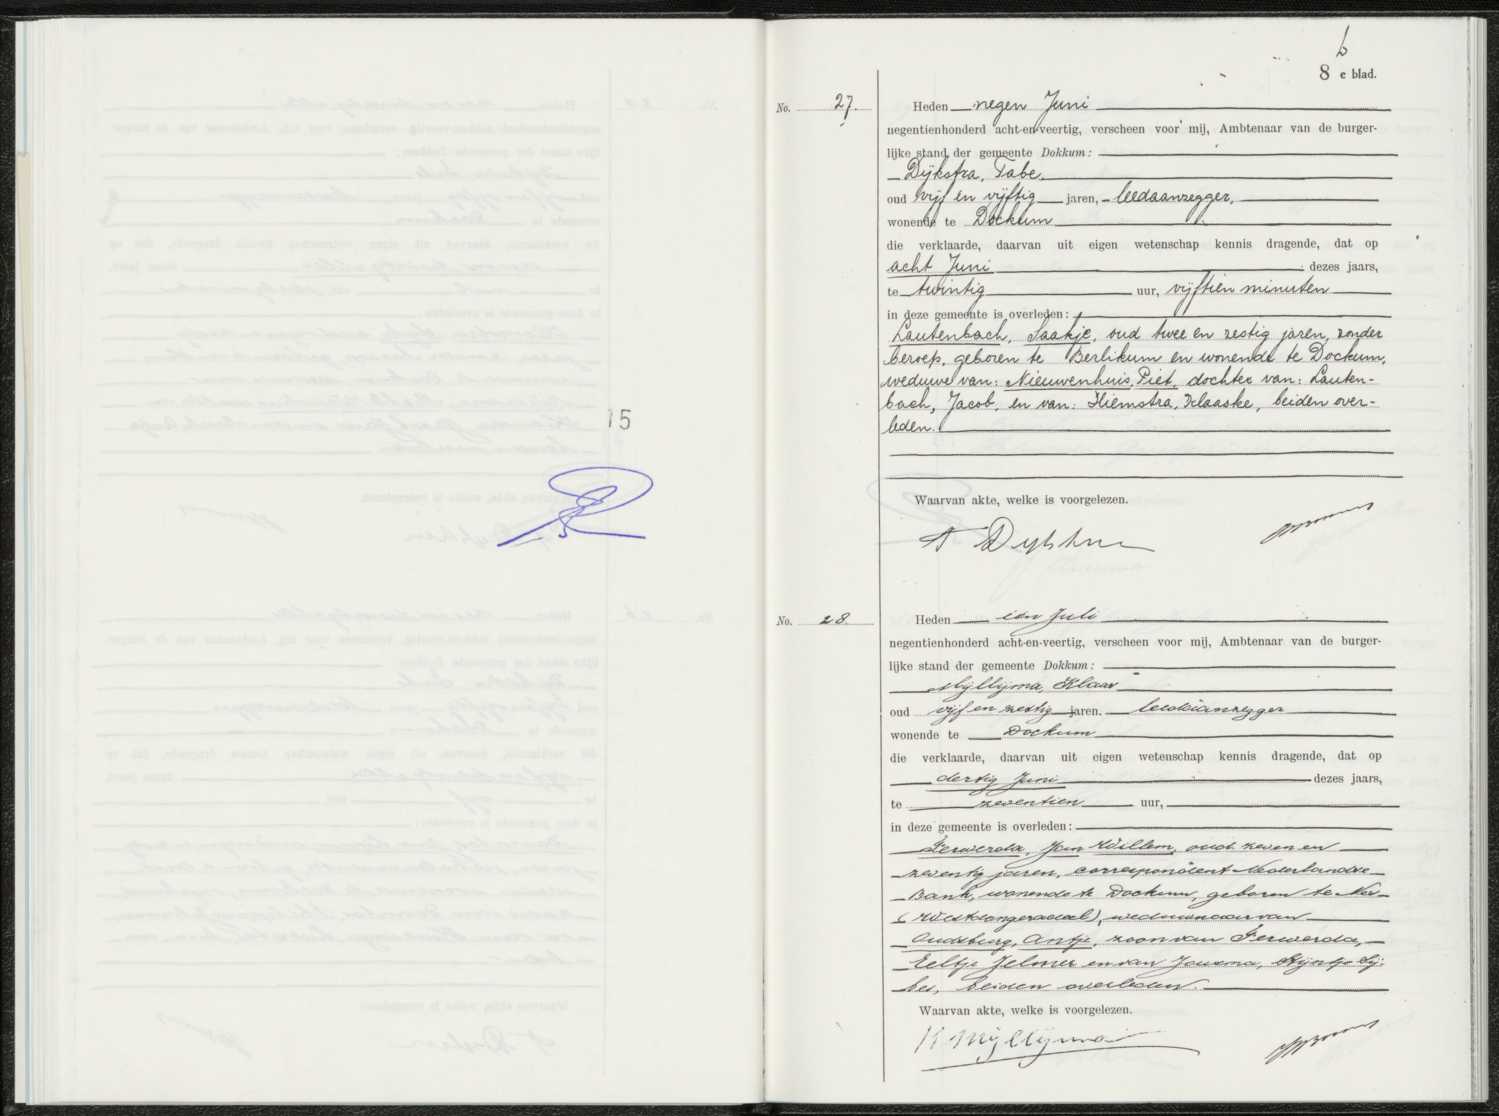 15
b
8 e blad.
No. 27.
Heden negen Juni
negentienhonderd acht-en-veertig, verscheen voor mij, Ambtenaar van de burger-
lijke stand der gemeente Dokkum:
Dijkstra, Tabe,
oud vijf en vijftig jaren, leedaanzegger,
wonende te Dockum
die verklaarde, daarvan uit eigen wetenschap kennis dragende, dat op
acht Juni dezes jaars,
te twintig uur, vijftien minuten
in deze gemeente is overleden:
Lautenbach, Saakje, oud twee en zestig jaren, zonder
beroep, geboren te Berlikum en wonende te Dockum,
weduwe van: Nieuwenhuis, Piet, dochter van: Lauten-
bach, Jacob, en van: Hiemstra, Klaaske, beiden over-
leden.
Waarvan akte, welke is voorgelezen.
T Dykstra
No. 28.
Heden een Juli
negentienhonderd acht-en-veertig, verscheen voor mij, Ambtenaar van de burger-
lijke stand der gemeente Dokkum:
Mijllijma, Klaas
oud vijf en zestig jaren. leedaanzegger
wonende te Dockum
die verklaarde, daarvan uit eigen wetenschap kennis dragende, dat op
dertig Juni dezes jaars,
te zeventien uur,
in deze gemeente is overleden:
Ferwerda, Jan Willem, oud zeven en
zeventig jaren, correspondent Nederlandse
Bank, wonende te Dockum, geboren te Nes
(Westdongeradeel), weduwnaar van
Oudsburg, Antje, zoon van Ferwerda,
Eeltje Jelmer en van Jousma, Stijntje Sij-
bes, beiden overleden.
Waarvan akte, welke is voorgelezen.
K. Mijllijma